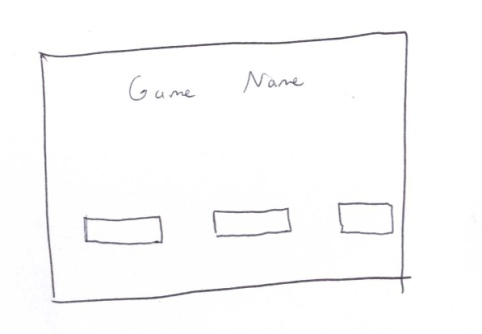 Game Name